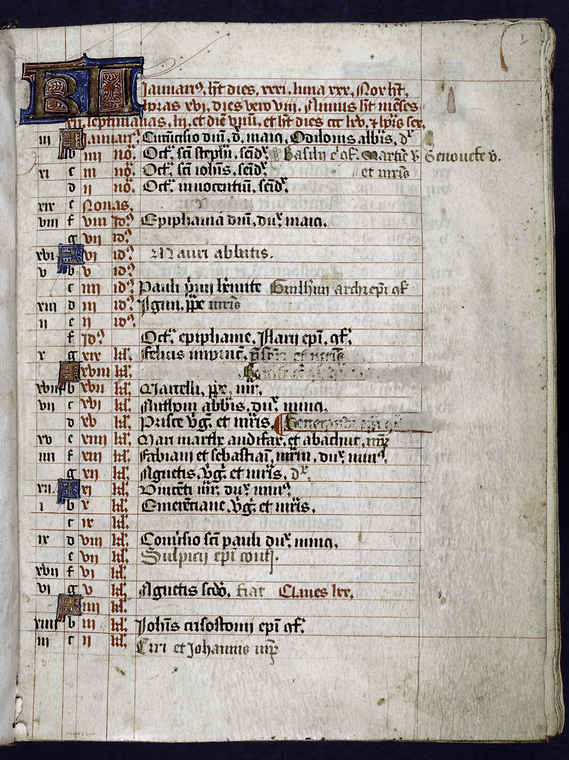 1
KL Januari9. h̄t dies. xxxi. luna xxx. Nox h̄t.
horas xvi. dies vero viii. Annus h̄t mēses
xii. septimanas. lii. et dīe vnū. et h̄t dies ccc lxv. et
iii A Januari9. Circūcisio dn̄i. d. maio. Odilonis abb̄is.
b iiii no. Oct. sc̄i steph̄i. Basilii et Genouefe v.
xi c iii no. Oct. sc̄i ioh̄is. et m̄ris
d ii no. Oct. innocentiū.
xix e Nonas.
viii f viii Id9 Epiphania dn̄i. dux. maio.
g vii id9
xvi A vi id9 Mauri abbatis.
v b v id9
c iiii id9 Pauli p̄mi h̄mite Guilh̄mi archiep̄i
xiii d iii id9 Igini. pp̄e m̄ris
ii e ii id9
f id9 Oct. epiphanie. Ilarii ep̄i. 9f.
x g xix kl. Felicis et m̄ris
A xviii kl.
xviii b xvii kl. Marcelli. pp̄e. m̄r.
vii c xvi kl. Anthonii abb̄is. dux. mino.
d xv kl. Prisce v̄g. et m̄ris.
xv e xiiii kl. Marii marthe audifax. et abachuc. m̄r̄m
iiii f xiii kl. Fabiani et sebastiani. m̄r̄m. dux. min9.
g xii kl. Agnetis. v̄g. et m̄ris.
xii A xi kl. Vincētii m̄r. dux. min9.
i b x kl. Emerētiane. v̄g. et m̄ris.
c ix kl.
ix d viii kl. Conūsio sc̄i pauli dux. mino.
e vii kl. Sulpicii ep̄i conf.
xvii f vi kl.
vi g v kl. Agnetis sc̄do. fiat Claues lxx.
A iiii kl.
xiiii b iii kl. Ioh̄is crisostomi ep̄i 9f.
iii c ii kl. Ciri et Johannis m̄r̄